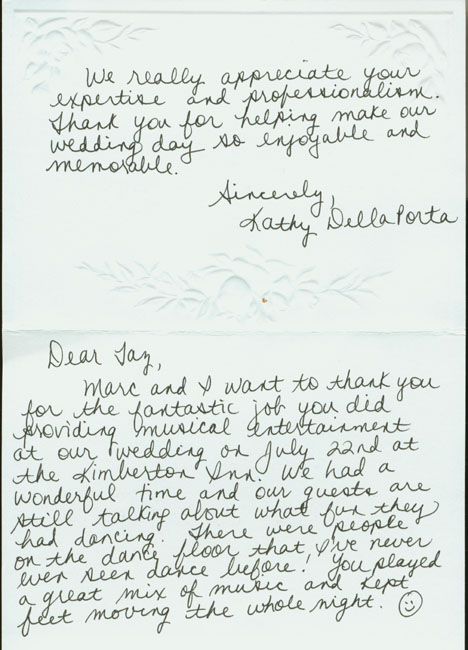 We really appreciate your
expertise and professionalism.
Thank you for helping make our
wedding day so enjoyable and
memorable.
Sincerely,
Kathy DellaPorta
Dear Jay,
Marc and I want to thank you
for the fantastic job you did
providing musical entertainment
at our wedding on July 22nd at
the Kimberton Inn. We had a
wonderful time and our guests are
still talking about what fun they
had dancing. There were people
on the dance floor that I've never
even seen dance before! You played
a great mix of music and kept
feet moving the whole night. ☺